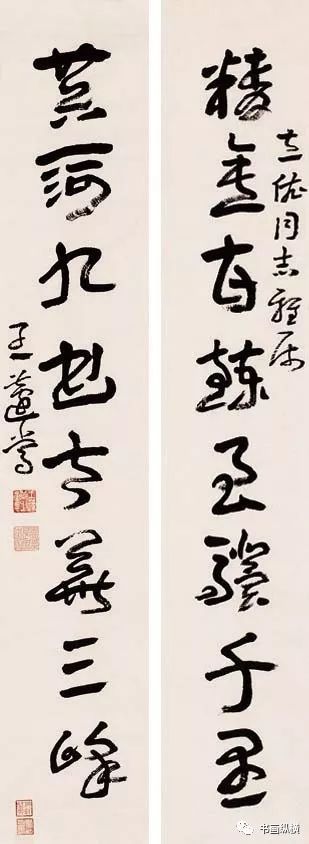 精金百鍊良驥千里
同志雅属
黄河九曲太華三峰
王蘧常
书画纵横